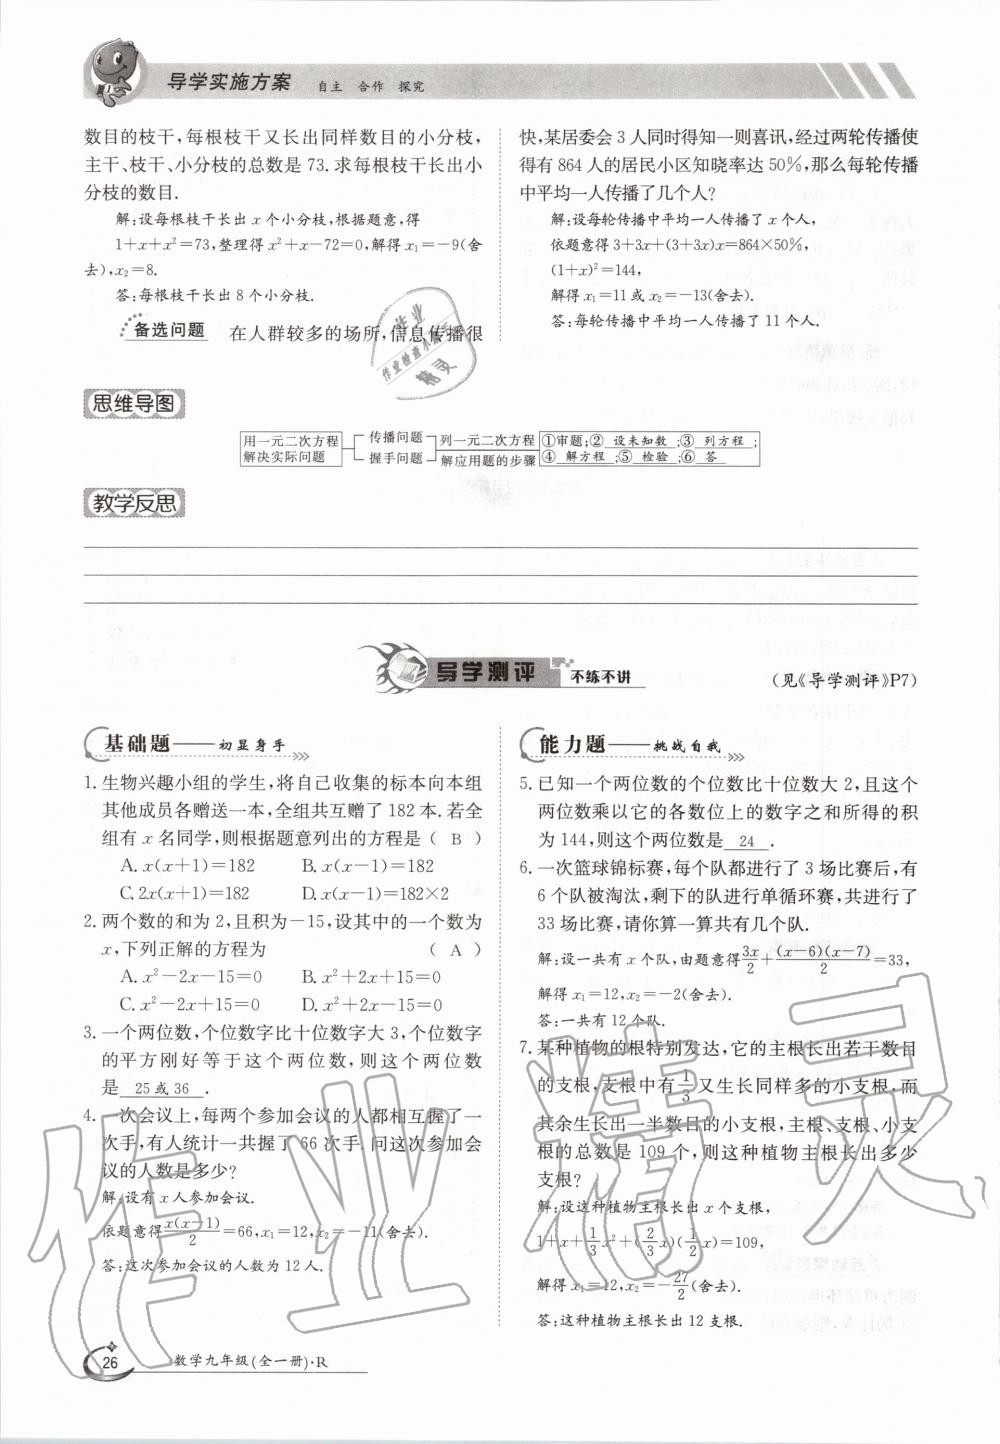 导学实施方案 自主 合作 探究
数目的枝干,每根枝干又长出同样数目的小分枝,
主干、枝干、小分枝的总数是 73. 求每根枝干长出小
分枝的数目.
解:设每根枝干长出 x 个小分枝,根据题意,得
1+x+x²=73,整理得 x²+x-72=0,解得 x₁=-9(舍
去),x₂=8.
答:每根枝干长出 8 个小分枝.
备选问题 在人群较多的场所,信息传播很
快,某居委会 3 人同时得知一则喜讯,经过两轮传播使
得有 864 人的居民小区知晓率达 50%,那么每轮传播
中平均一人传播了几个人?
解:设每轮传播中平均一人传播了 x 个人,
依题意得 3+3x+(3+3x)x=864×50%,
(1+x)²=144,
解得 x₁=11 或 x₂=-13(舍去).
答:每轮传播中平均一人传播了 11 个人.
作业
作业检查小助手
精灵
思维导图
用一元二次方程
解决实际问题
传播问题
握手问题
列一元二次方程
解应用题的步骤
①审题;② 设未知数 ;③ 列方程 ;
④ 解方程 ;⑤ 检验 ;⑥ 答
教学反思
导学测评 不练不讲 (见《导学测评》P7)
基础题——初显身手
1. 生物兴趣小组的学生,将自己收集的标本向本组
其他成员各赠送一本,全组共互赠了 182 本. 若全
组有 x 名同学,则根据题意列出的方程是 ( B )
A. x(x+1)=182 B. x(x-1)=182
C. 2x(x+1)=182 D. x(x-1)=182×2
2. 两个数的和为 2,且积为-15,设其中的一个数为
x,下列正解的方程为 ( A )
A. x²-2x-15=0 B. x²+2x+15=0
C. x²-2x+15=0 D. x²+2x-15=0
3. 一个两位数,个位数字比十位数字大 3,个位数字
的平方刚好等于这个两位数,则这个两位数
是 25 或 36 .
4. 一次会议上,每两个参加会议的人都相互握了一
次手,有人统计一共握了 66 次手. 问这次参加会
议的人数是多少?
解:设有 x 人参加会议.
依题意得 x(x-1)/2=66,x₁=12,x₂=-11(舍去).
答:这次参加会议的人数为 12 人.
能力题——挑战自我
5. 已知一个两位数的个位数比十位数大 2,且这个
两位数乘以它的各数位上的数字之和所得的积
为 144,则这个两位数是 24 .
6. 一次篮球锦标赛,每个队都进行了 3 场比赛后,有
6 个队被淘汰,剩下的队进行单循环赛,共进行了
33 场比赛,请你算一算共有几个队.
解:设一共有 x 个队,由题意得 3x/2+(x-6)(x-7)/2=33,
解得 x₁=12,x₂=-2(舍去).
答:一共有 12 个队.
7. 某种植物的根特别发达,它的主根长出若干数目
的支根,支根中有 1/3 又生长同样多的小支根,而
其余生长出一半数目的小支根,主根、支根、小支
根的总数是 109 个,则这种植物主根长出多少
支根?
解:设这种植物主根长出 x 个支根,
1+x+1/3x²+(2/3x)(1/2x)=109,
解得 x₁=12,x₂=-27/2(舍去).
答:这种植物主根长出 12 支根.
作业精灵
26 数学九年级(全一册)·R